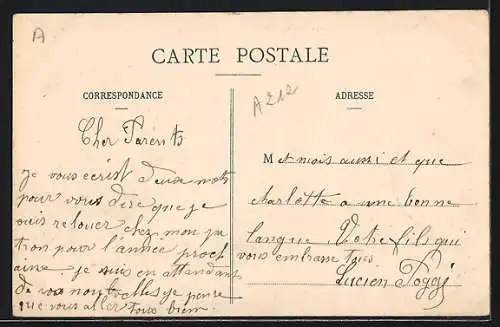 A
CARTE POSTALE
CORRESPONDANCE
ADRESSE
A 212
Cher Parents
Je vous ecrist deux mots
pour vous dire que je
suis relouer chez mon pa
tron pour l'année proch
aine je suis en attendant
de vos nouvelles je pense
que vous aller tous bien.
M et mois aussi et que
charlotte a une bonne
langue. Votre fils qui
vous embrasse tous
Lucien